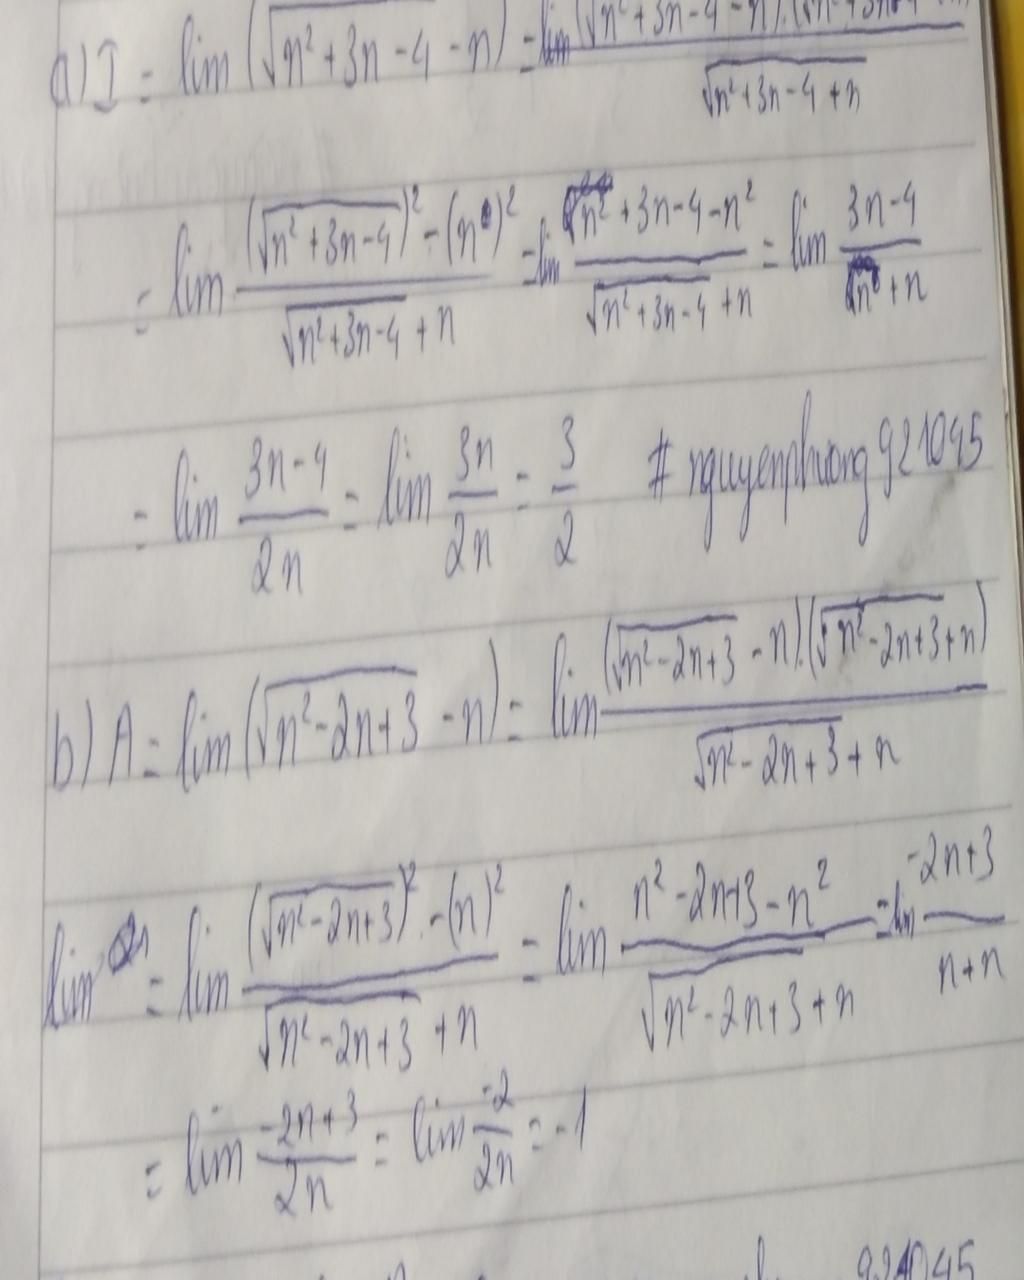 a) I = lim (√(n²+3n-4) - n) = lim (√(n²+3n-4) - n).(√(n²+3n-4) / √(n²+3n-4+n)
= lim ((√(n²+3n-4))² - (n)²) / (√(n²+3n-4) + n) = lim (n²+3n-4-n²) / (√(n²+3n-4) + n) = lim (3n-4) / (n + n)
= lim (3n-4)/2n = lim 3n/2n = 3/2 # nguyenphuong921045
b) A = lim (√(n²-2n+3) - n) = lim (√(n²-2n+3) - n).(√(n²-2n+3) + n) / (√(n²-2n+3) + n)
lim = lim ((√(n²-2n+3))² - (n)²) / (√(n²-2n+3) + n) = lim (n²-2n+3-n²) / (√(n²-2n+3) + n) = lim (-2n+3) / (n+n)
= lim (-2n+3)/2n = lim -2/2n = -1
921045